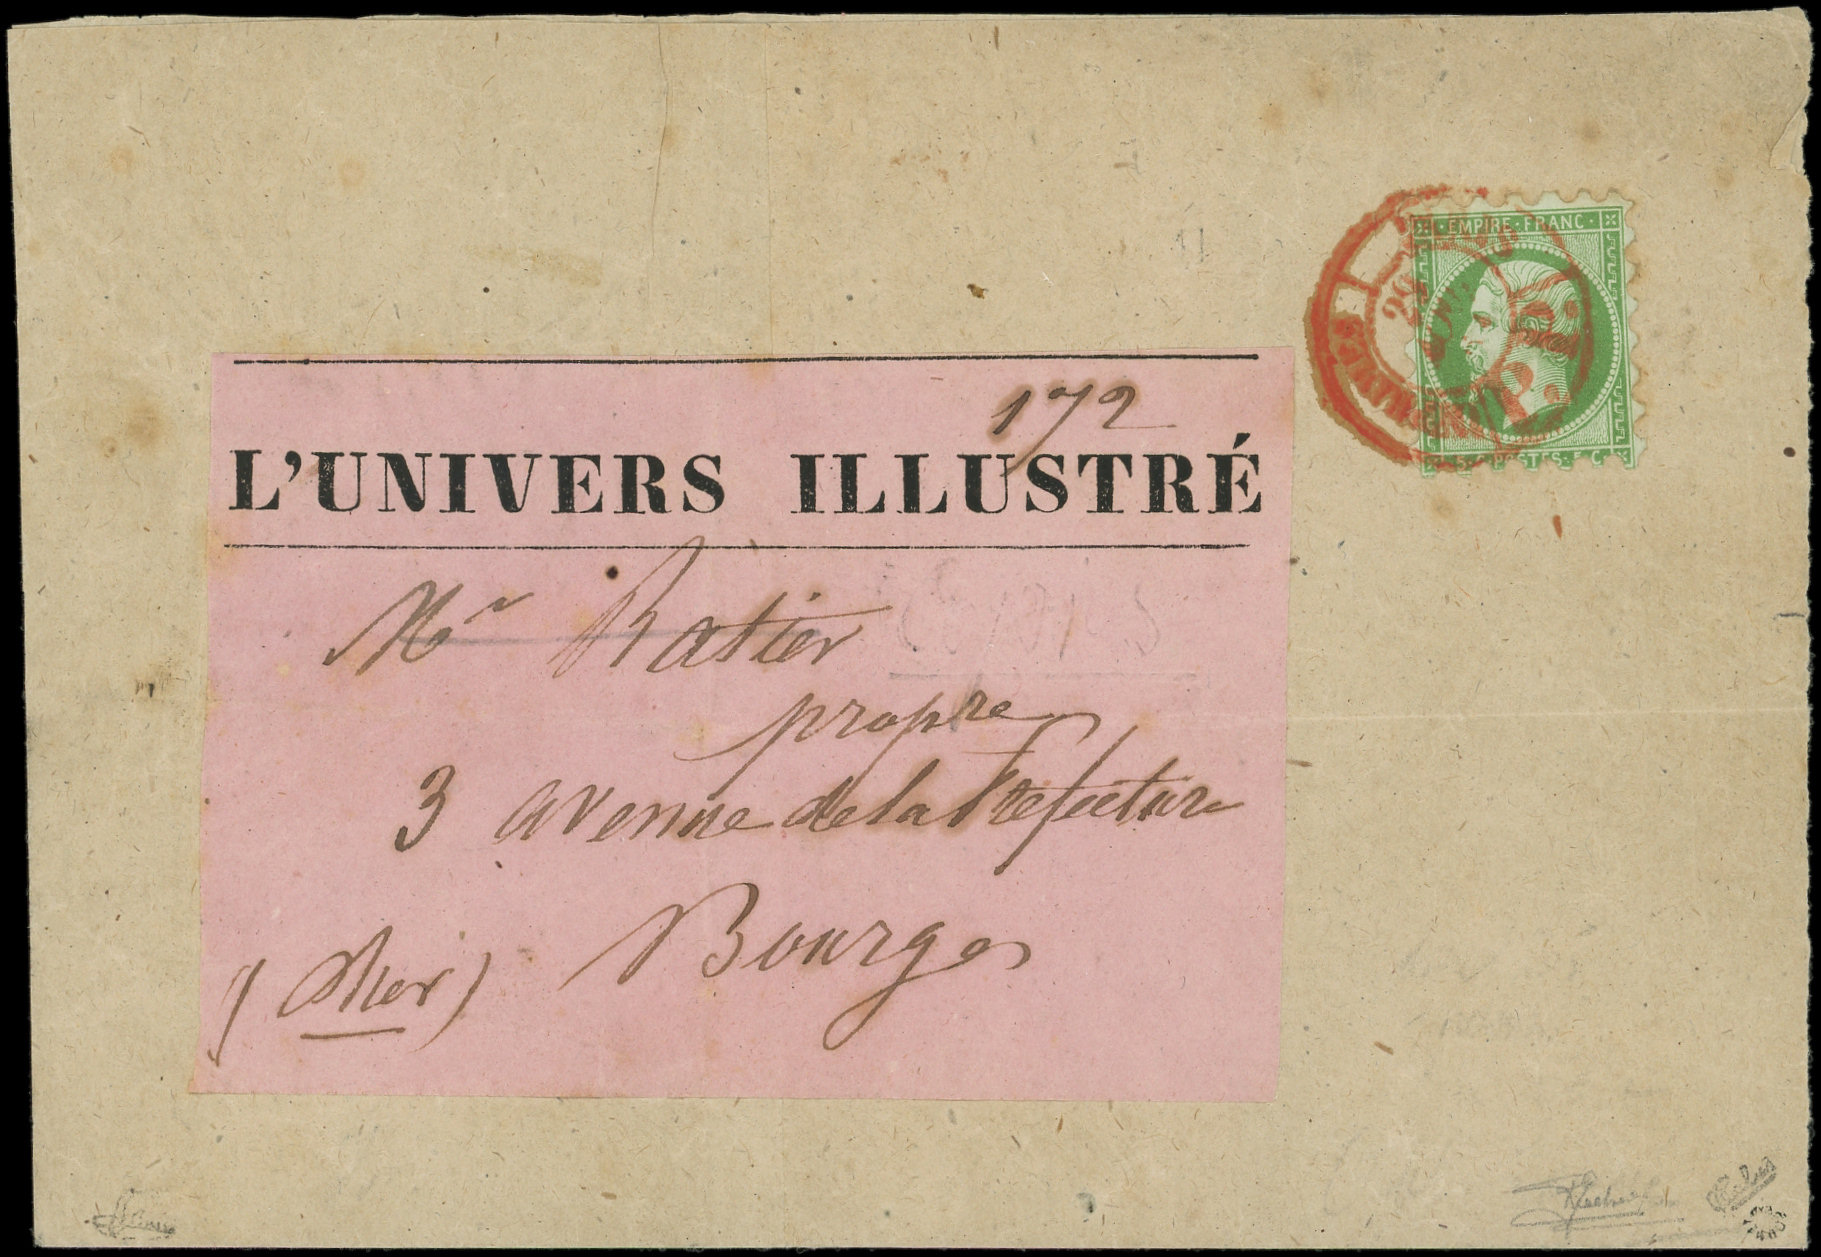 EMPIRE·FRANC·
29
P.P.
5·C·POSTES·5·C·
172
L'UNIVERS ILLUSTRÉ
Mr Ratier
propre
3 avenue de la Prefecture
Bourges
(Cher)